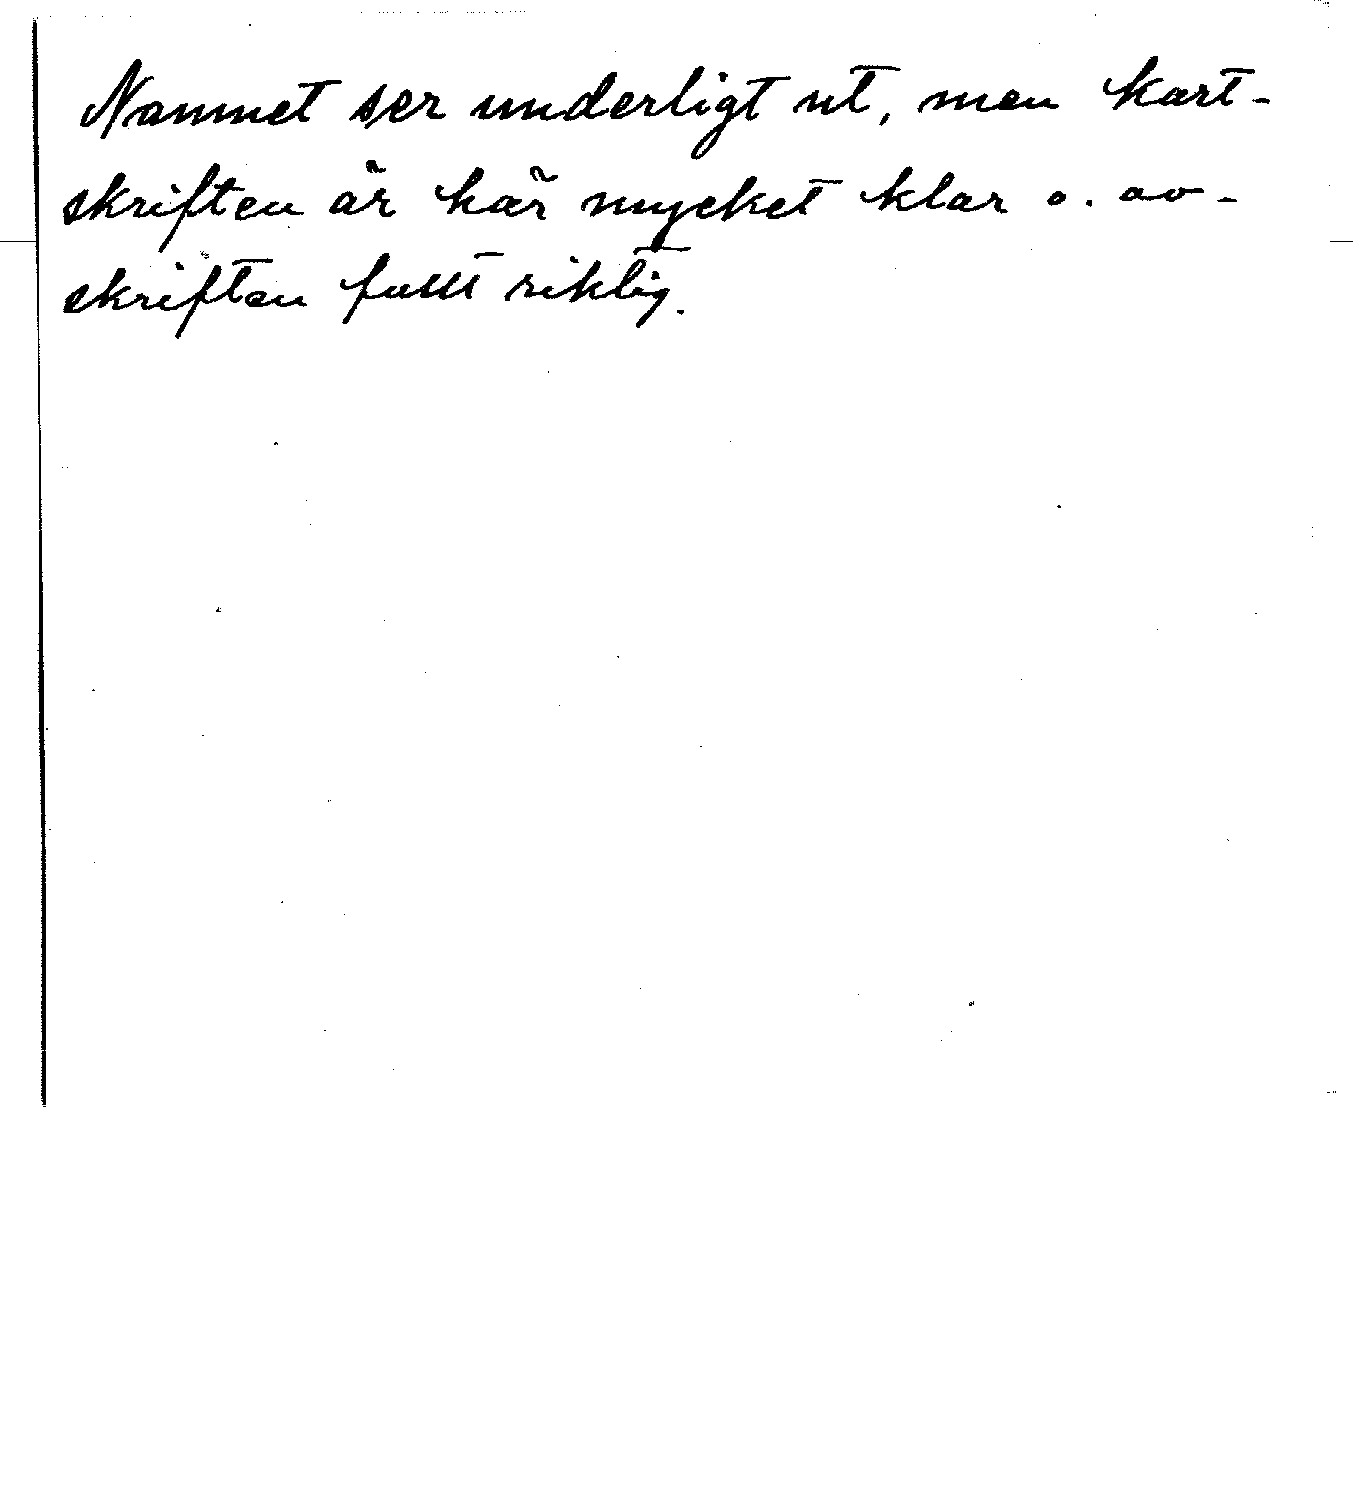 Namnet ser underligt ut, men kart-
skriften är här mycket klar o. av-
skriften fullt riktig.